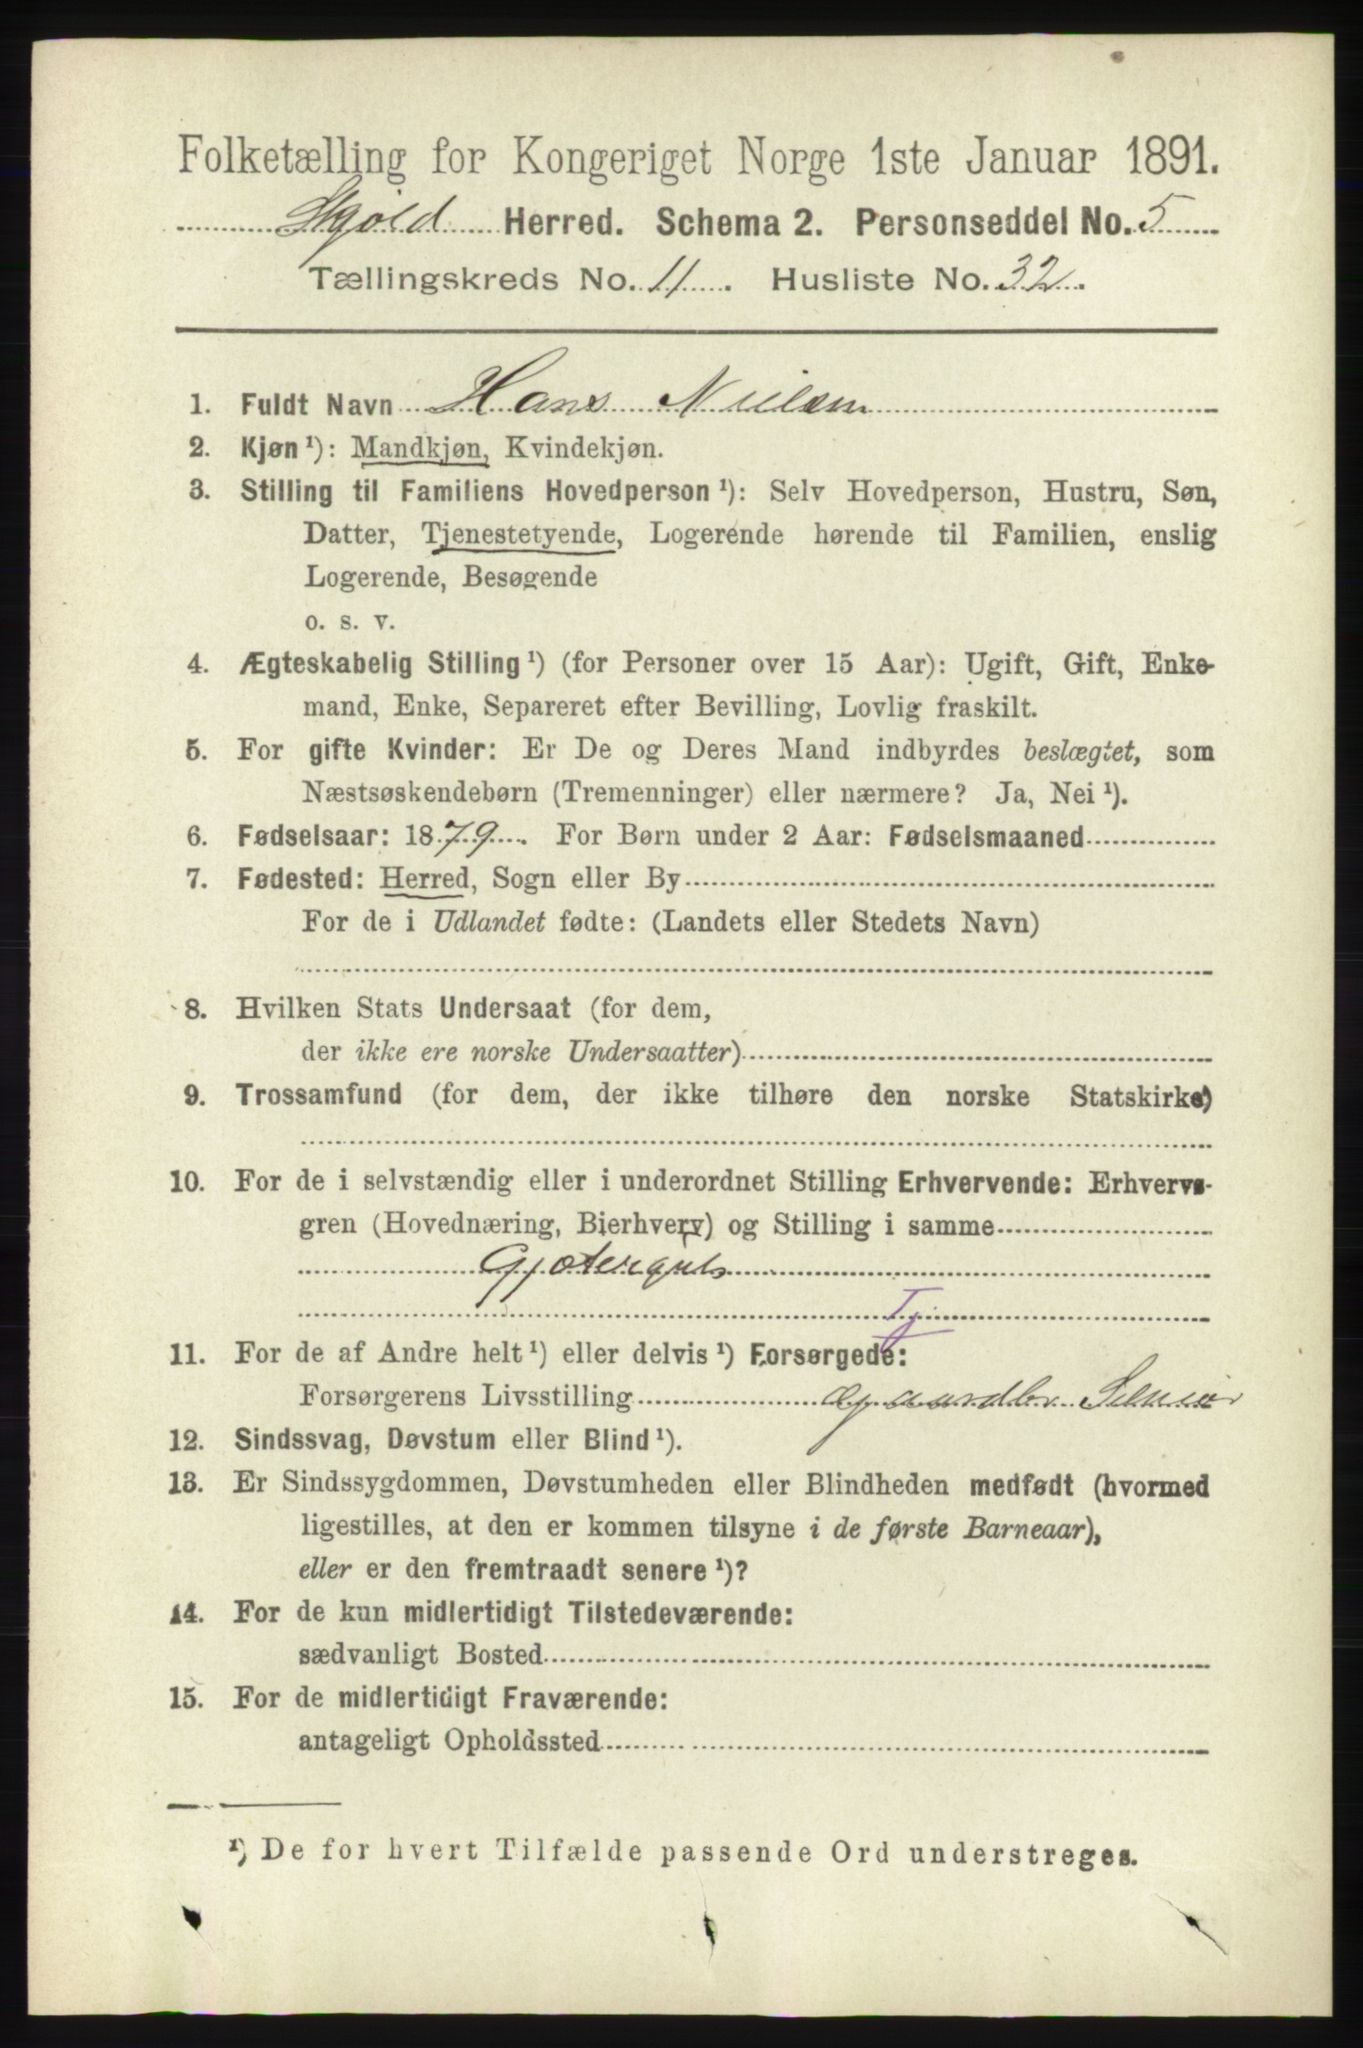 Folketælling for Kongeriget Norge 1ste Januar 1891.
Skjold Herred. Schema 2. Personseddel No. 5
Tællingskreds No. 11. Husliste No. 32.
1. Fuldt Navn Hans Nielsen
2. Kjøn ¹): Mandkjøn, Kvindekjøn.
3. Stilling til Familiens Hovedperson ¹): Selv Hovedperson, Hustru, Søn,
Datter, Tjenestetyende, Logerende hørende til Familien, enslig
Logerende, Besøgende
o. s. v.
4. Ægteskabelig Stilling ¹) (for Personer over 15 Aar): Ugift, Gift, Enke-
mand, Enke, Separeret efter Bevilling, Lovlig fraskilt.
5. For gifte Kvinder: Er De og Deres Mand indbyrdes beslægtet, som
Næstsøskendebørn (Tremenninger) eller nærmere? Ja, Nei ¹).
6. Fødselsaar: 1879. For Børn under 2 Aar: Fødselsmaaned
7. Fødested: Herred, Sogn eller By
For de i Udlandet fødte: (Landets eller Stedets Navn)
8. Hvilken Stats Undersaat (for dem,
der ikke ere norske Undersaatter)
9. Trossamfund (for dem, der ikke tilhøre den norske Statskirke)
10. For de i selvstændig eller i underordnet Stilling Erhvervende: Erhvervs-
gren (Hovednæring, Bierhverv) og Stilling i samme
Gjætergut
Tj.
11. For de af Andre helt ¹) eller delvis ¹) Forsørgede:
Forsørgerens Livsstilling Gaardbr.
12. Sindssvag, Døvstum eller Blind ¹).
13. Er Sindssygdommen, Døvstumheden eller Blindheden medfødt (hvormed
ligestilles, at den er kommen tilsyne i de første Barneaar),
eller er den fremtraadt senere ¹)?
14. For de kun midlertidigt Tilstedeværende:
sædvanligt Bosted
15. For de midlertidigt Fraværende:
antageligt Opholdssted
¹) De for hvert Tilfælde passende Ord understreges.